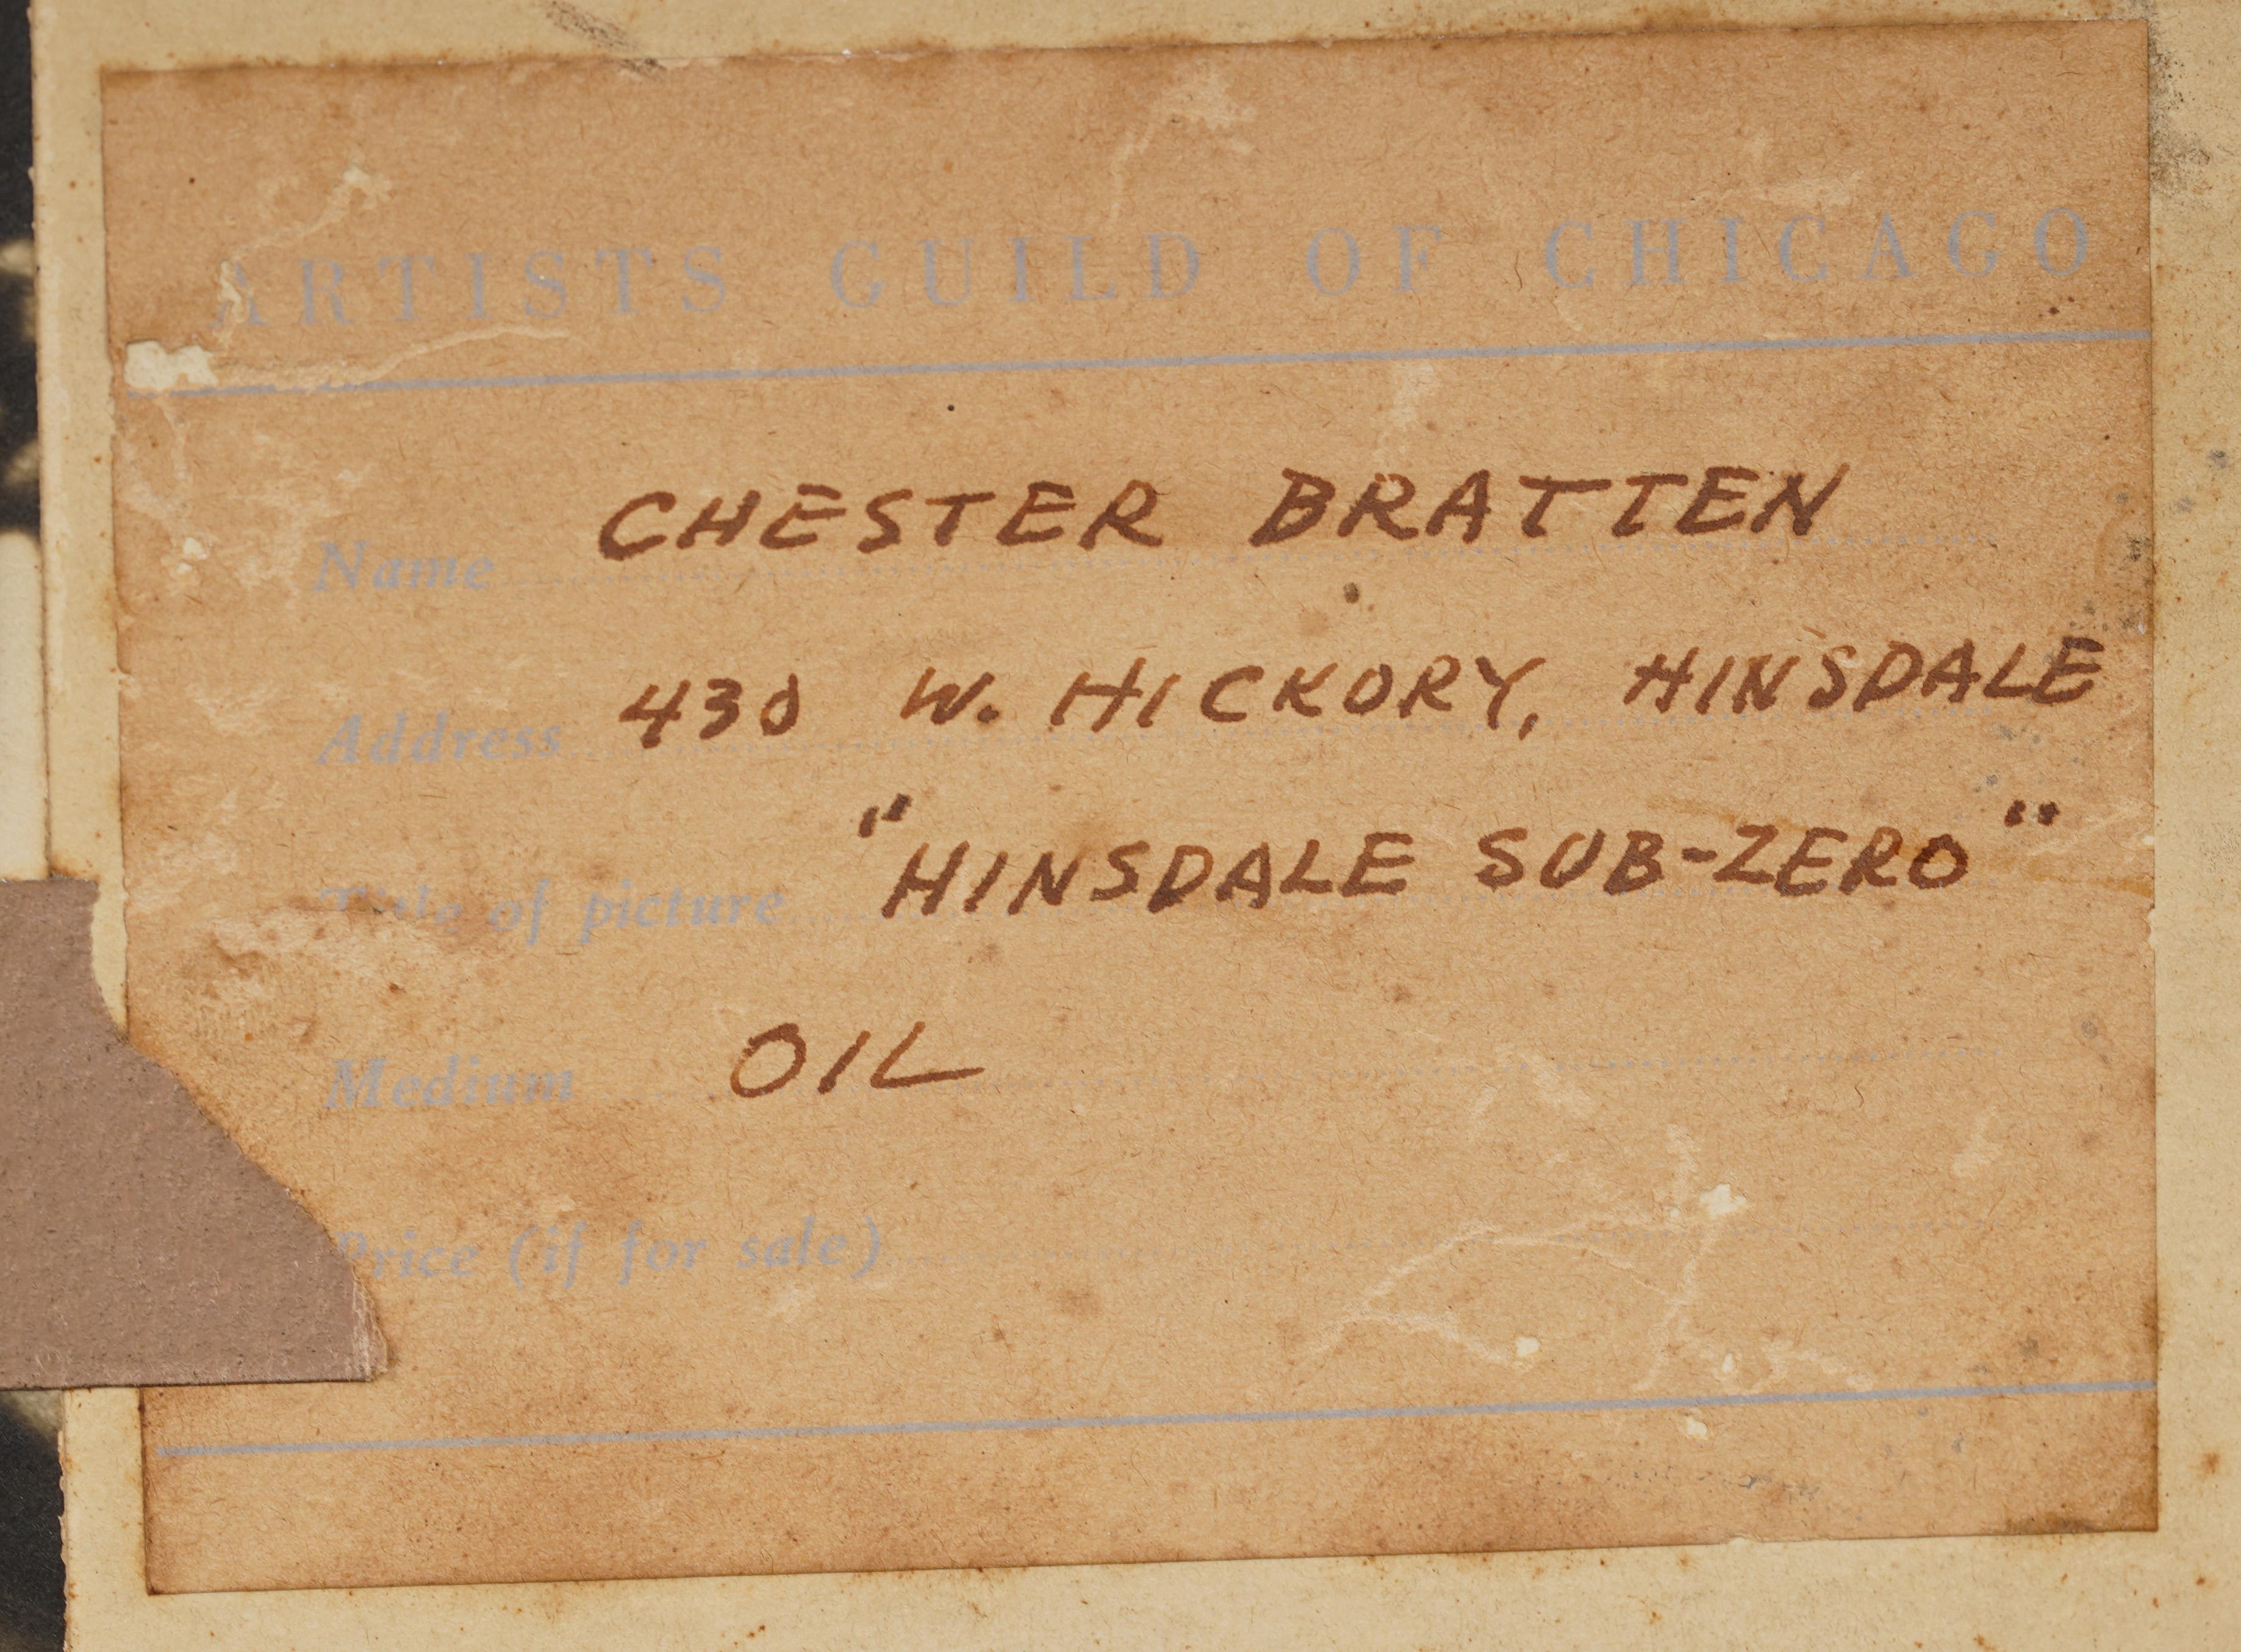 ARTISTS GUILD OF CHICAGO
Name CHESTER BRATTEN
Address 430 W. HICKORY, HINSDALE
Title of picture "HINSDALE SUB-ZERO"
Medium OIL
Price (if for sale)